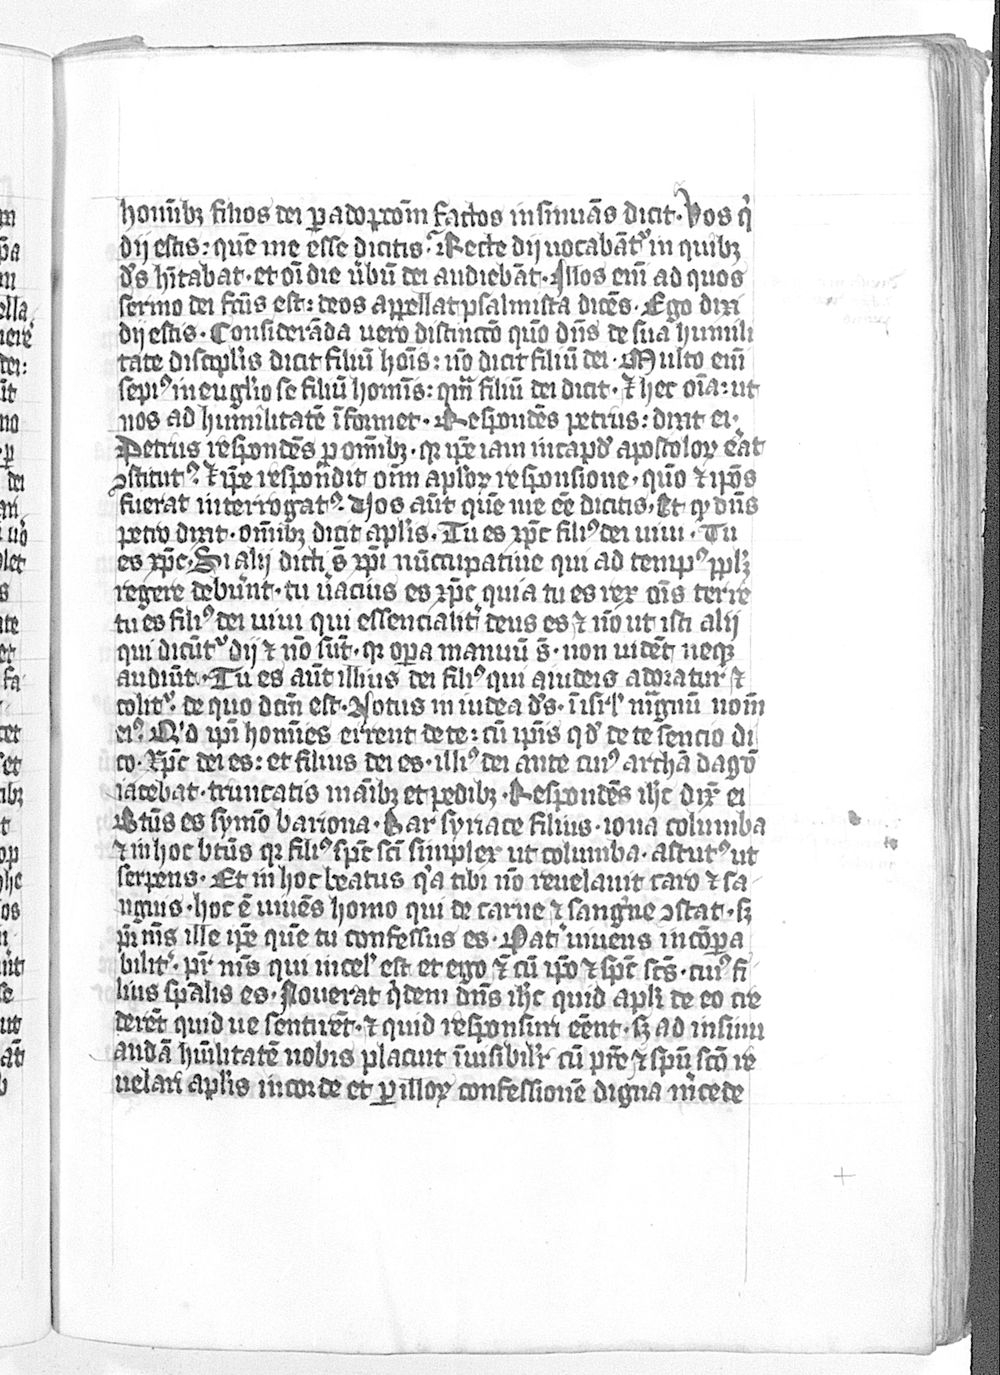 homībꝫ filios dei ꝑ adopcōm factos insinuās dicit · Vos qͥ
dij estis : quē me esse dicitis · Recte dij uocabāt᷑ in quibꝫ
dꝰs hītabat · et oī die ūbū dei audiebāt · Illos em̄ ad quos
sermo dei fc̄us est : deos appellat psalmista dicēs · Ego dixi
dij estis · Considerāda uero distinccō quō dn̄s de sua humili
tate discipl̄is dicit filiū hoīs : nō dicit filiū dei · Multo em̄
sepiꝰ in euḡlio se filiū homīs : qm̄ filiū dei dicit · ⁊ hec oīa : ut
nos ad humilitatē īformet · Respondēs petrus : dixit ei ·
Petrus respondēs ꝓ omībꝫ · qr ip̄e iam in capd̄ apostoloꝝ erat
ꝯstitutꝰ · ⁊ ip̄e respondit oīm aplōꝝ responsione · quō ⁊ ip̄os
fuerat interrogatꝰ · Vos aūt quē me eē dicitis · Et qͩ dn̄s
petro dixit · omībꝫ dicit apl̄is · Tu es xp̄c filiꝰ dei uiui · Tu
es xp̄c · Si alij dicti s̄ xp̄i nūcupatiue qui ad tempꝰ ppl̄ꝫ
regere debūnt · tu ūacius es xp̄c quia tu es rex oīs terre
tu es filiꝰ dei uiui qui essencialit̄ deus es ⁊ nō ut isti alij
qui dicūt᷑ dij ⁊ nō sūt · qr oꝑa manuū s̄ · non uidēt neqꝫ
audiūt · Tu es aūt illius dei filiꝰ qui a iudeis adoratur ⁊
colit᷑ · de quo dcm̄ est · Notus in iudea dꝰs · ī isrl̄ māgnū nom̄
eiꝰ · Qͥd ip̄i homīes eirent de te : cū ip̄is qͩ de te sencio di
co · Xp̄c dei es : et filius dei es · illiꝰ dei ante cuiꝰ archā dagō
iacebat · truncatis māibꝫ et pedibꝫ · Respondēs ih̄c dix̄ ei
Btūs es symō bariona · Bar syriace filius · iona columba
⁊ in hoc btūs qr filiꝰ sp̄c sc̄i simplex ut columba · astutꝰ ut
serpens · Et in hoc beatus qͥa tibi nō reuelauit caro ⁊ sa
nguis · hoc ē uiuēs homo qui de carne ⁊ sanguīne ꝯstat · sꝫ
pr̄ m̄s ille ip̄e quē tu confessus es · Pat̄ uiuens incōꝑa
bilit̄ · pr̄ m̄s qui in cel̄ est et ego ⁊ cū ip̄o ⁊ sp̄c sc̄s · cuiꝰ fi
lius spalis es · Nouerat qͥdem dn̄s ih̄c quid apl̄i de eo cre
derēt quid ue sentirēt · ⁊ quid responsuri eēnt · sꝫ ad insinu
andā hūilitatē nobis placuit īuisibilit̄ cū pr̄e ⁊ sp̄u sc̄o re
uelari apl̄is in corde et ꝑ illoꝝ confessionē digna m̄cede